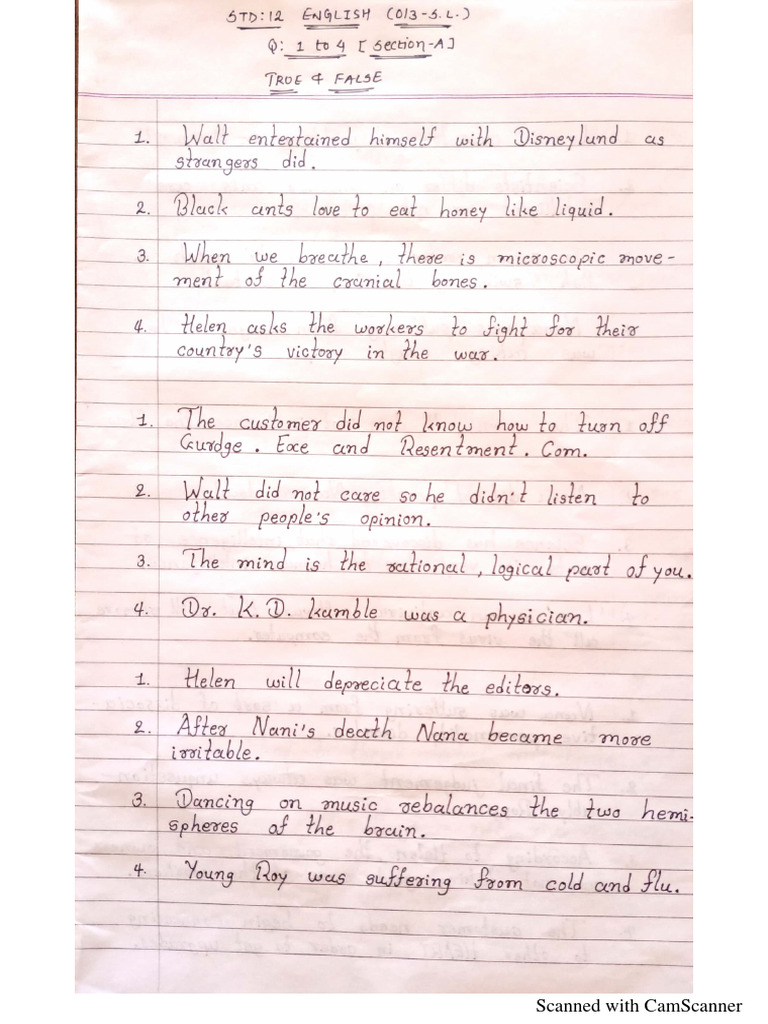 STD:12 ENGLISH (013-S.L.)
Q: 1 to 4 [Section-A]
TRUE & FALSE
1. Walt entertained himself with Disneylund as
strangers did.
2. Black ants love to eat honey like liquid.
3. When we breathe, there is microscopic move-
ment of the cranial bones.
4. Helen asks the workers to fight for their
country's victory in the war.
1. The customer did not know how to turn off
Gurdge. Exe and Resentment. Com.
2. Walt did not care so he didn't listen to
other people's opinion.
3. The mind is the rational, logical part of you.
4. Dr. K.D. Kamble was a physician.
1. Helen will depreciate the editors.
2. After Nani's death Nana became more
irritable.
3. Dancing on music rebalances the two hemi-
spheres of the brain.
4. Young Roy was suffering from cold and flu.
Scanned with CamScanner